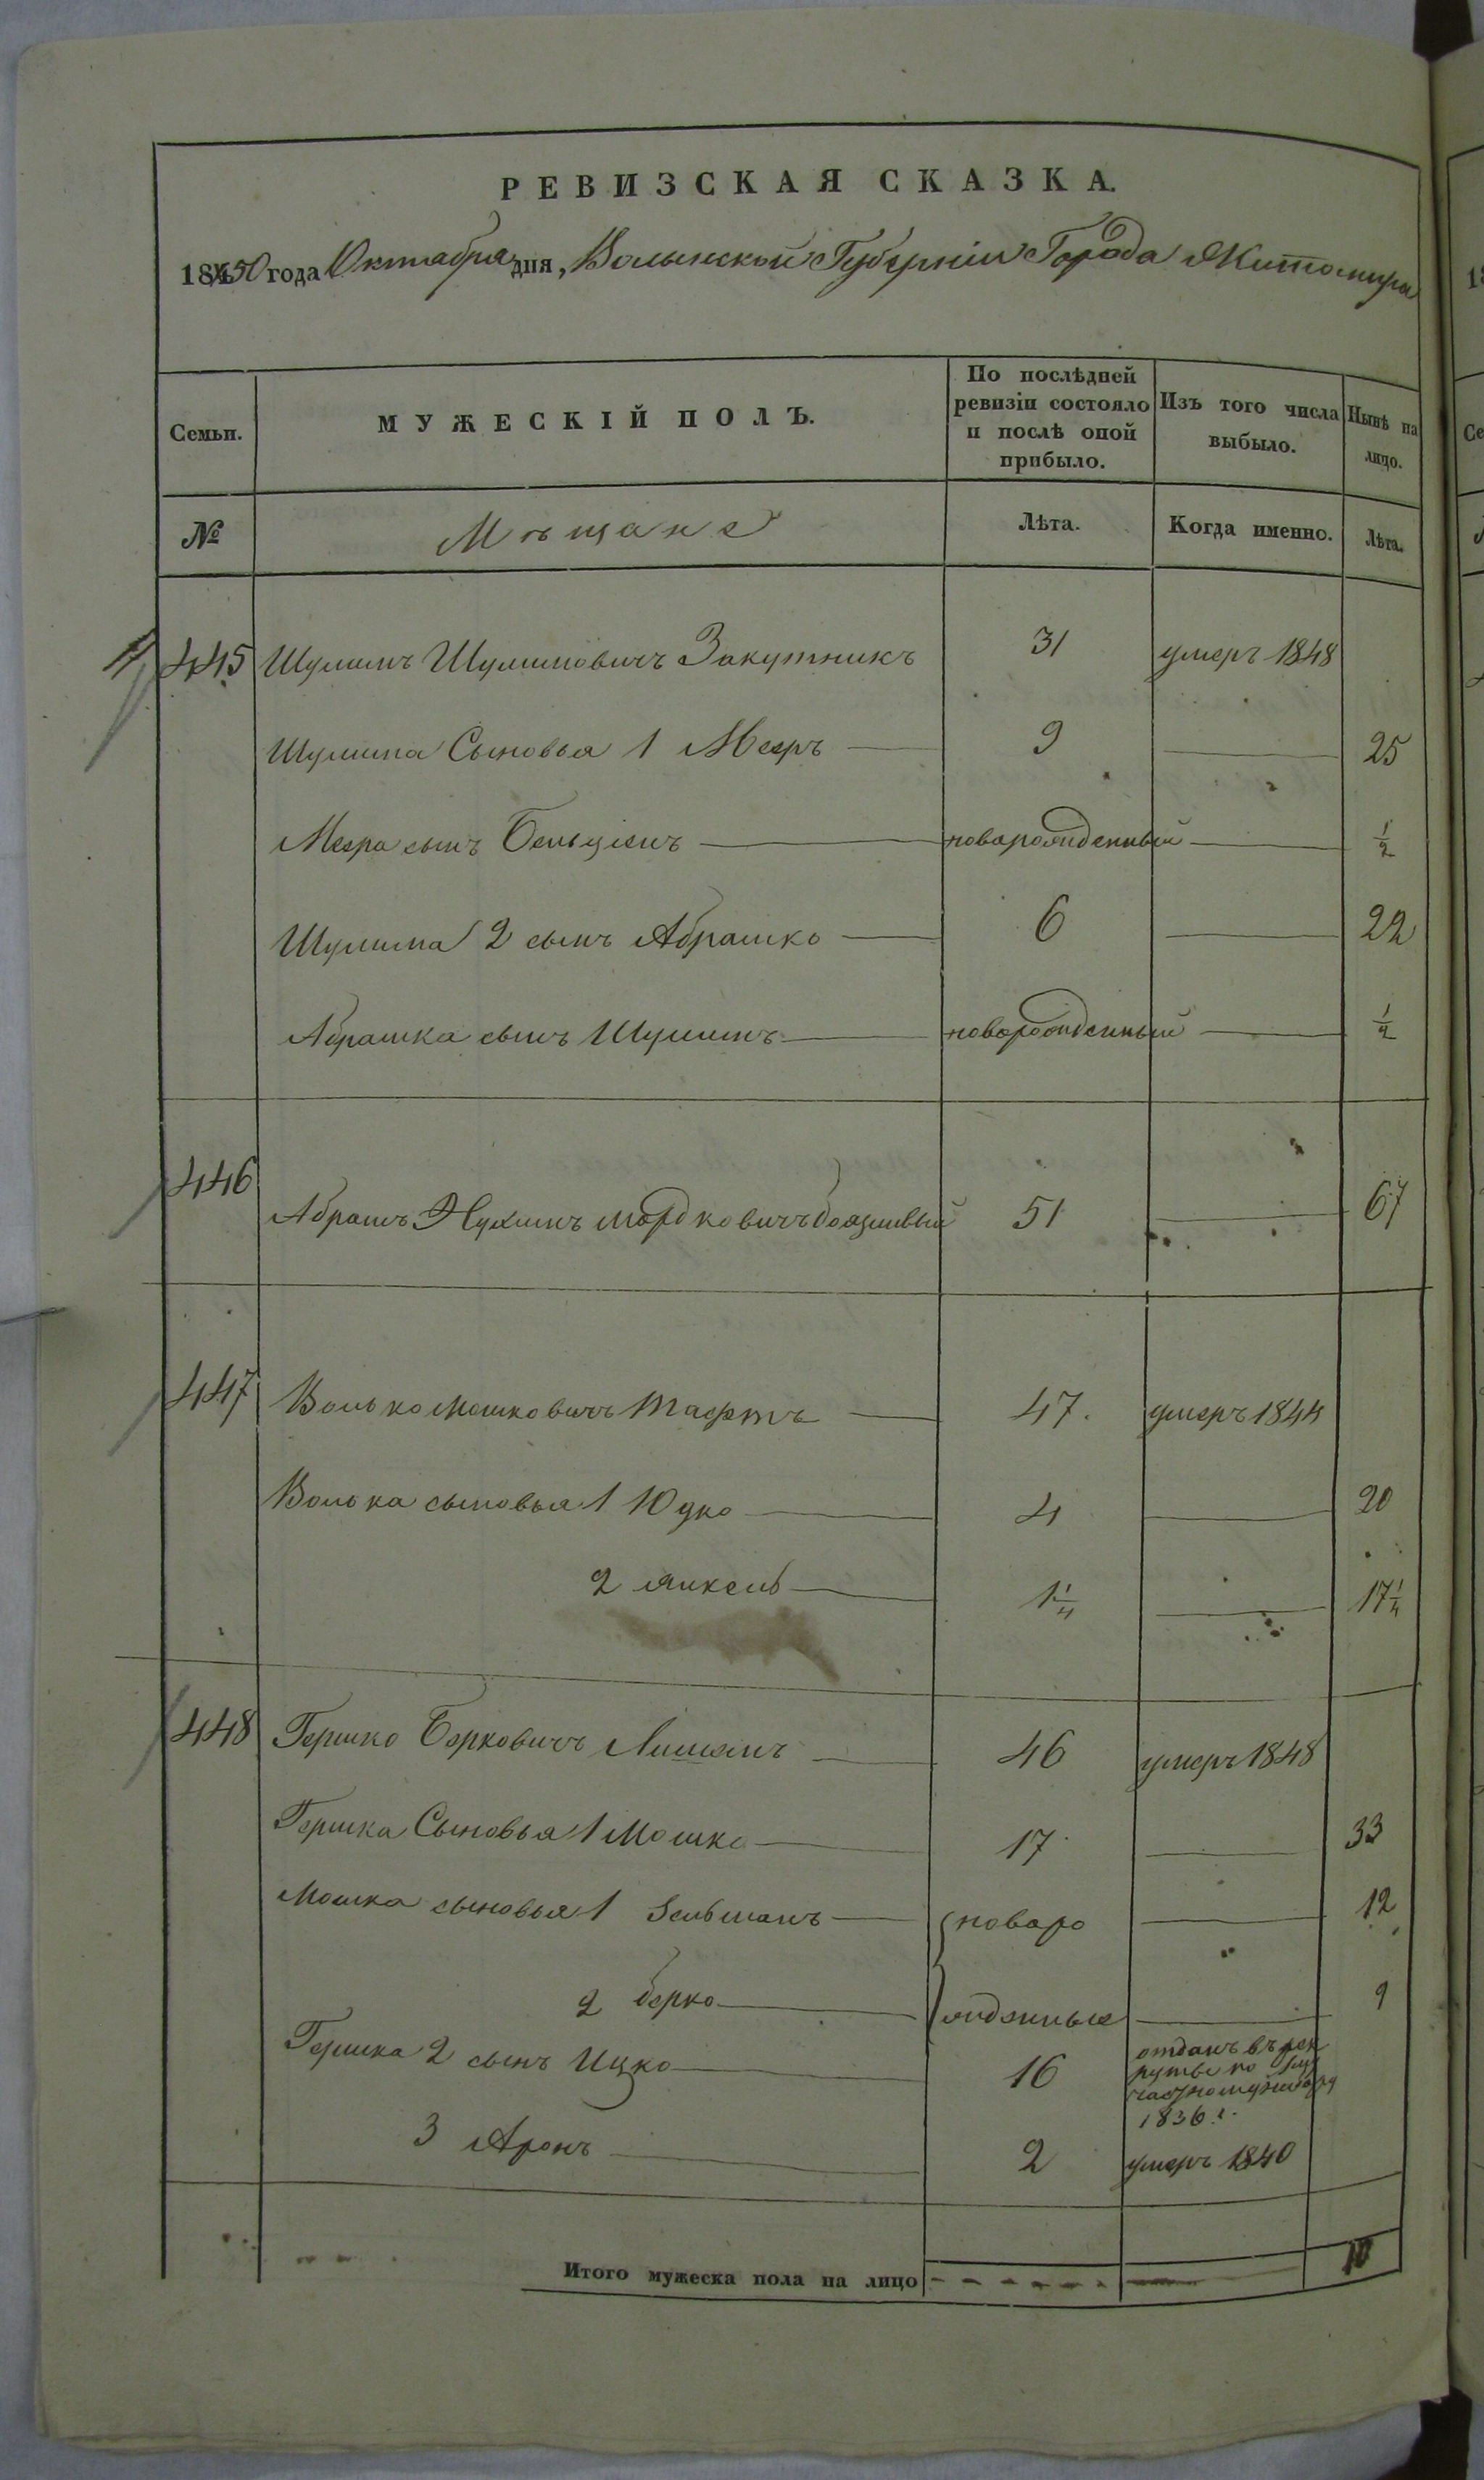 РЕВИЗСКАЯ СКАЗКА.
1850 года Октября дня, Волынской Губерніи Города Житомира
Семьи.
МУЖЕСКІЙ ПОЛЪ.
По послѣдней
ревизіи состояло
и послѣ оной
прибыло.
Изъ того числа
выбыло.
Нынѣ на
лицо.
№
Мѣщане
Лѣта.
Когда именно.
Лѣта.
445 Шулимъ Шулимовичъ Закутникъ 31 умеръ 1848
Шулима Сыновья 1 Мееръ 9 25
Меера сынъ новорожденный 1/2
Шулима 2 сынъ Абрашко 6 22
Абрашка сынъ Шулимъ новорожденный 1/2
446
Абрамъ Нухимъ Мордковичъ Боязливый 51 67
447 Волько Мошковичъ 47. умеръ 1844
Волька сыновья 1 Юдко 4 20
2 Янкель 1 1/4 17 1/4
448 Гершко Берковичъ 46 умеръ 1848
Гершка Сыновья 1 Мошко 17 33
Мошка сыновья 1 Зельманъ новоро 12
2 Берко жденные 9
Гершка 2 сынъ Ицко 16
отданъ въ рек
руты по
1836 г.
3 Аронъ 2 умеръ 1840
Итого мужеска пола на лицо 10